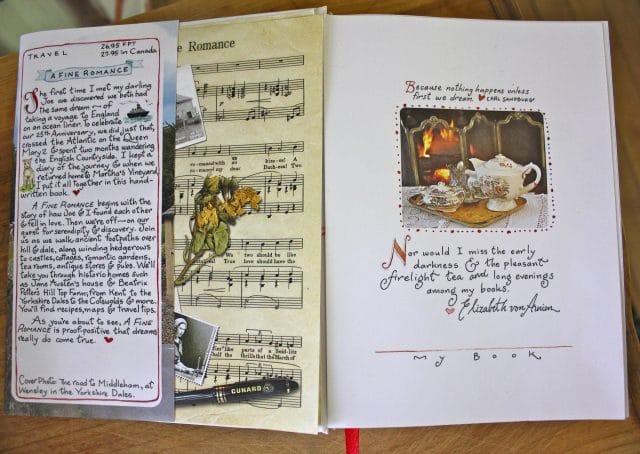 TRAVEL
26.95 FPT
29.95 in Canada
A FINE ROMANCE
The first time I met my darling
Joe we discovered we both had
the same dream — of
taking a voyage to England
on an ocean liner. To celebrate
our 25th Anniversary, we did just that,
crossed the Atlantic on the Queen
Mary 2 & spent two months wandering
the English Countryside. I kept a
diary of the journey & when we
returned home to Martha's Vineyard,
I put it all together in this hand-
written book.
A FINE ROMANCE begins with the
story of how Joe & I found each other
& fell in love. Then we're off — on our
quest for serendipity & discovery. Join
us as we walk ancient footpaths over
hill & dale, along winding hedgerows
to castles, cottages, romantic gardens,
tea rooms, antique stores & pubs. We'll
take you through historic homes such
as Jane Austen's house & Beatrix
Potter's Hill Top Farm, from Kent to the
Yorkshire Dales to the Cotswolds & more.
You'll find recipes, maps & travel tips.
As you're about to see, A FINE
ROMANCE is proof-positive that dreams
really do come true.
Cover Photo: The road to Middleham, at
Wensley in the Yorkshire Dales.
Fine Romance
ro-mance! with no
ro-mance! my dear
kiss-es! A
Duch-ess! Two
two should be like
True love should have the
parts of a Seid-litz
half the thrills that the March of
CUNARD
Because nothing happens unless
first we dream. CARL SANDBURG
Nor would I miss the early
darkness & the pleasant
firelight tea and long evenings
among my books.
Elizabeth von Arnim
My Book